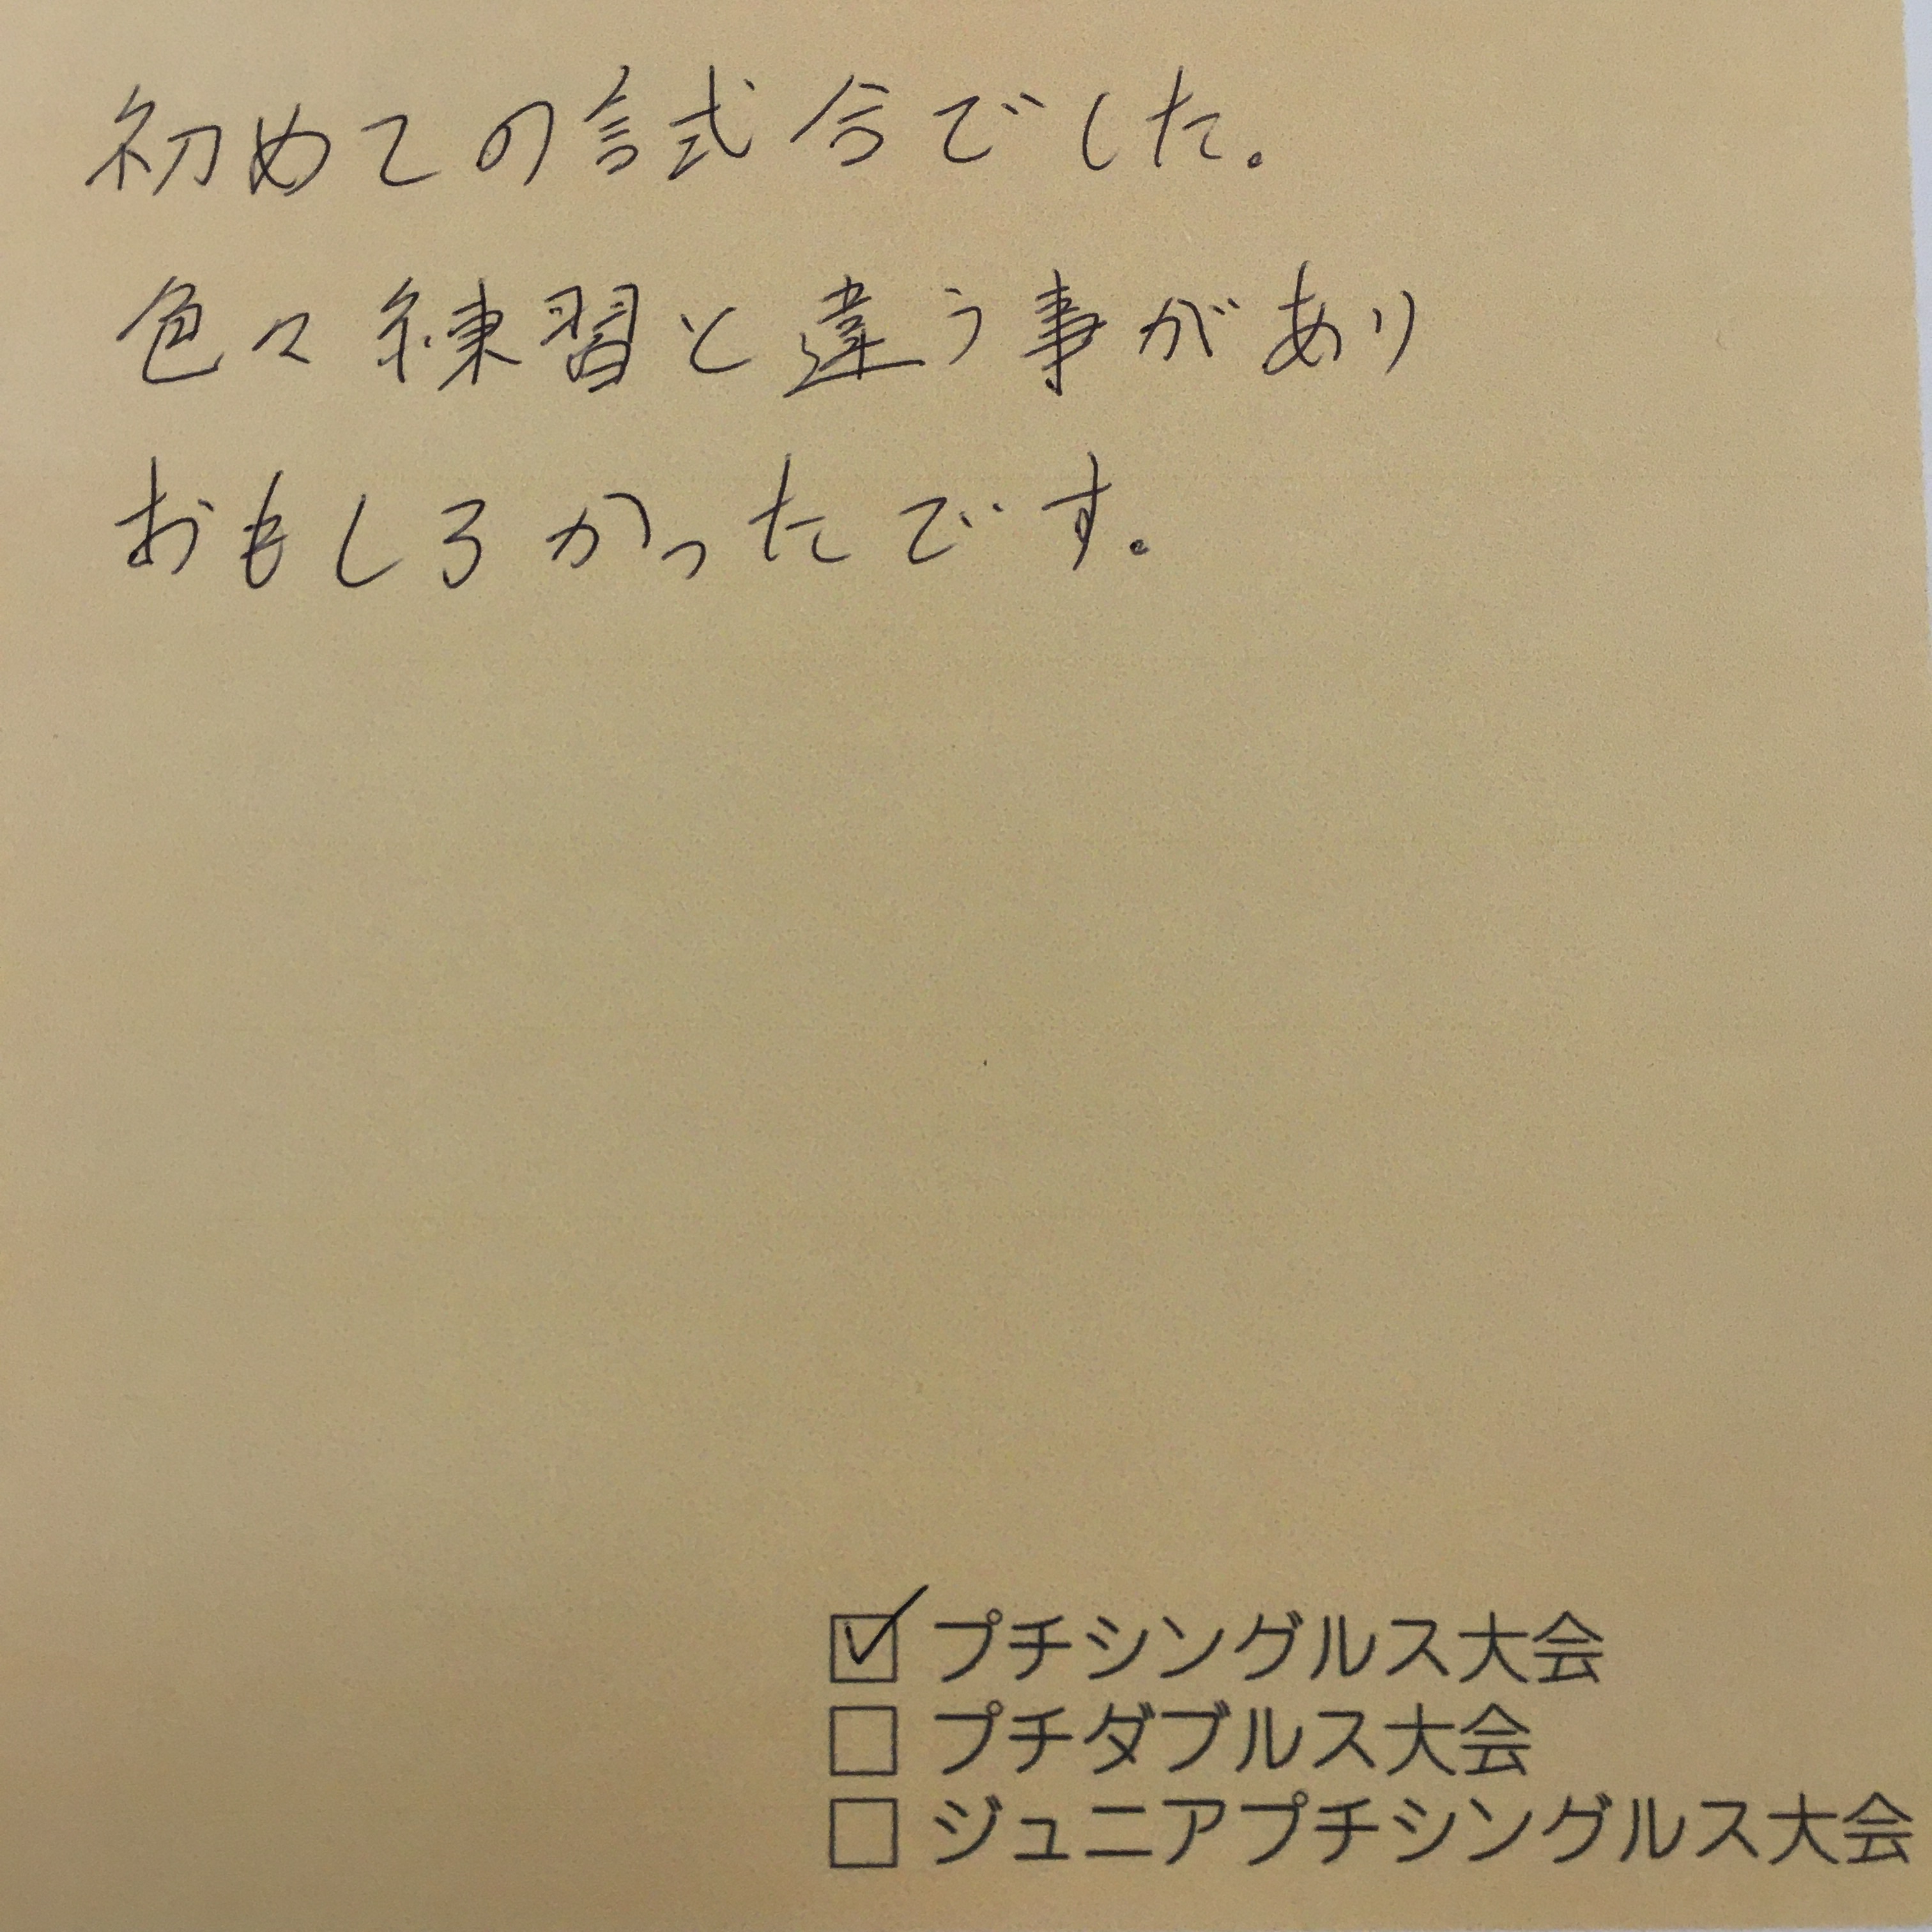 初めての試合でした。
色々練習と違う事があり
おもしろかったです。
☑ プチシングルス大会
☐ プチダブルス大会
☐ ジュニアプチシングルス大会